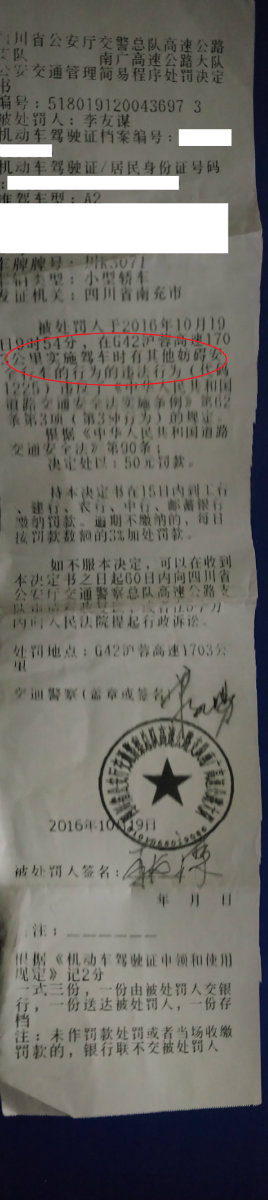 四川省公安厅交警总队高速公路
支队 南广高速公路大队
公安交通管理简易程序处罚决定
书
编号：518019120043697 3
被处罚人：李友谋
机动车驾驶证档案编号：
机动车驾驶证/居民身份证号码
：
准驾车型：A2
车牌号：
车辆类型：小型轿车
发证机关：四川省南充市
被处罚人于2016年10月19
日9时54分，在G42沪蓉高速170
3公里实施驾车时有其他妨碍安
全行车的行为的违法行为（代码
1225）违反了《中华人民共和国
道路交通安全法实施条例》第62
条第3项（第3种行为）的规定。
根据《中华人民共和国道路
交通安全法》第90条；
决定处以：50元罚款。
持本决定书在15日内到工行
、建行、农行、中行、邮蓄银行
缴纳罚款。逾期不缴纳的，每日
按罚款数额的3%加处罚款。
如不服本决定，可以在收到
本决定书之日起60日内向四川省
公安厅交通警察总队高速公路支
内向人民法院提起行政诉讼。
处罚地点：G42沪蓉高速1703公
里
交通警察（盖章或签名）
2016年10月19日
被处罚人签名：
年 月 日
备注：
根据《机动车驾驶证申领和使用
规定》记2分
一式三份，一份由被处罚人交银
行，一份送达被处罚人，一份存
档
注：未作罚款处罚或者当场收缴
罚款的，银行联不交被处罚人